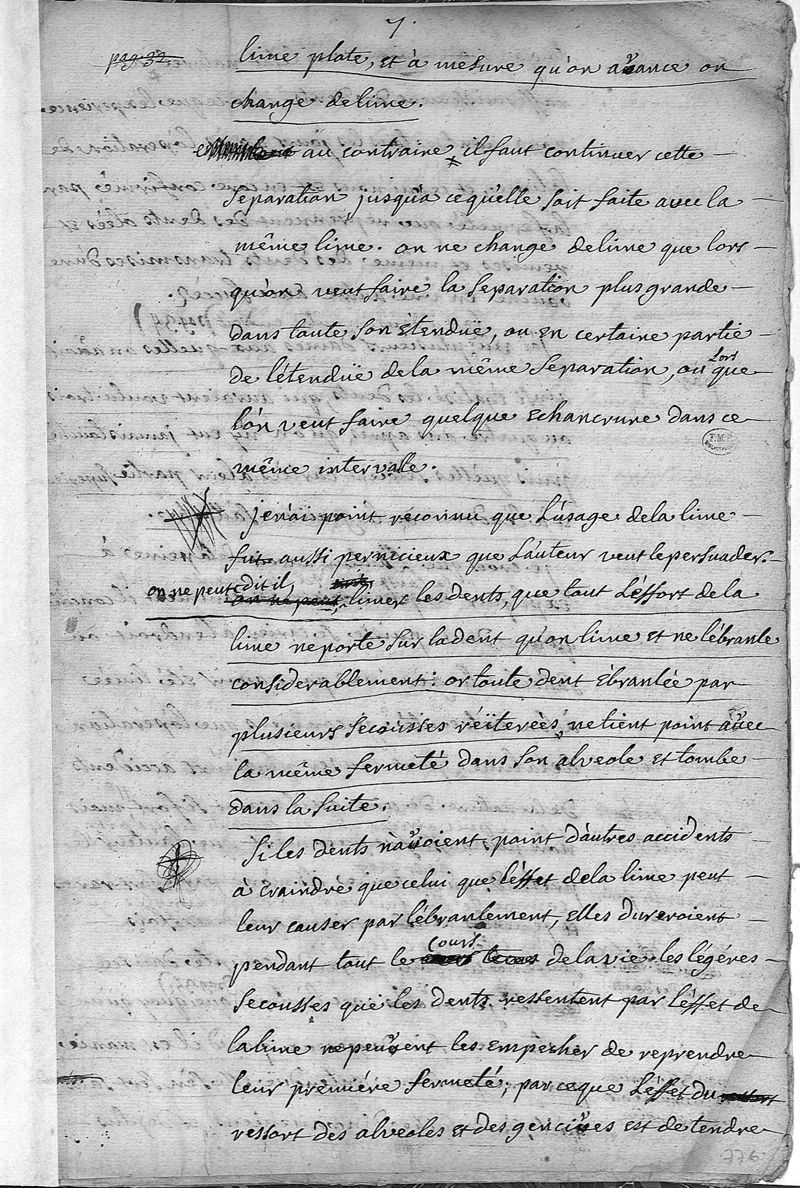 7.
pag. 32
lime plate, et à mesure qu'on avance on
change de lime.
au contraire il faut continuer cette
separation jusqu'a ce qu'elle soit faite avec la
même lime. on ne change de lime que lors
qu'on veut faire la separation plus grande
dans toute son étenduë, ou en certaine partie
de l'étenduë de la même separation, ou lors que
l'on veut faire quelque echancrure dans ce
même intervalle.
je n'ai point reconnu que l'usage de la lime
fut aussi pernicieux que l'auteur veut le persuader.
on ne peut, dit il, limer les dents, que tout l'effort de la
lime ne porte sur la dent qu'on lime et ne l'ébranle
considerablement: or toute dent ébranlée par
plusieurs secousses réïterées, ne tient point avec
la même fermeté dans son alveole et tombe
dans la suite.
si les dents n'avoient point d'autres accidents
à craindre que celui que l'éffet de la lime peut
leur causer par l'ébranlement, elles dureroient
pendant tout le cours de la vie. les légéres
secousses que les dents ressentent par l'éffet de
la lime ne peuvent les empecher de reprendre
leur premiére fermeté; parceque l'éffet du ressort
ressort des alveoles et des gencives est de tendre
776